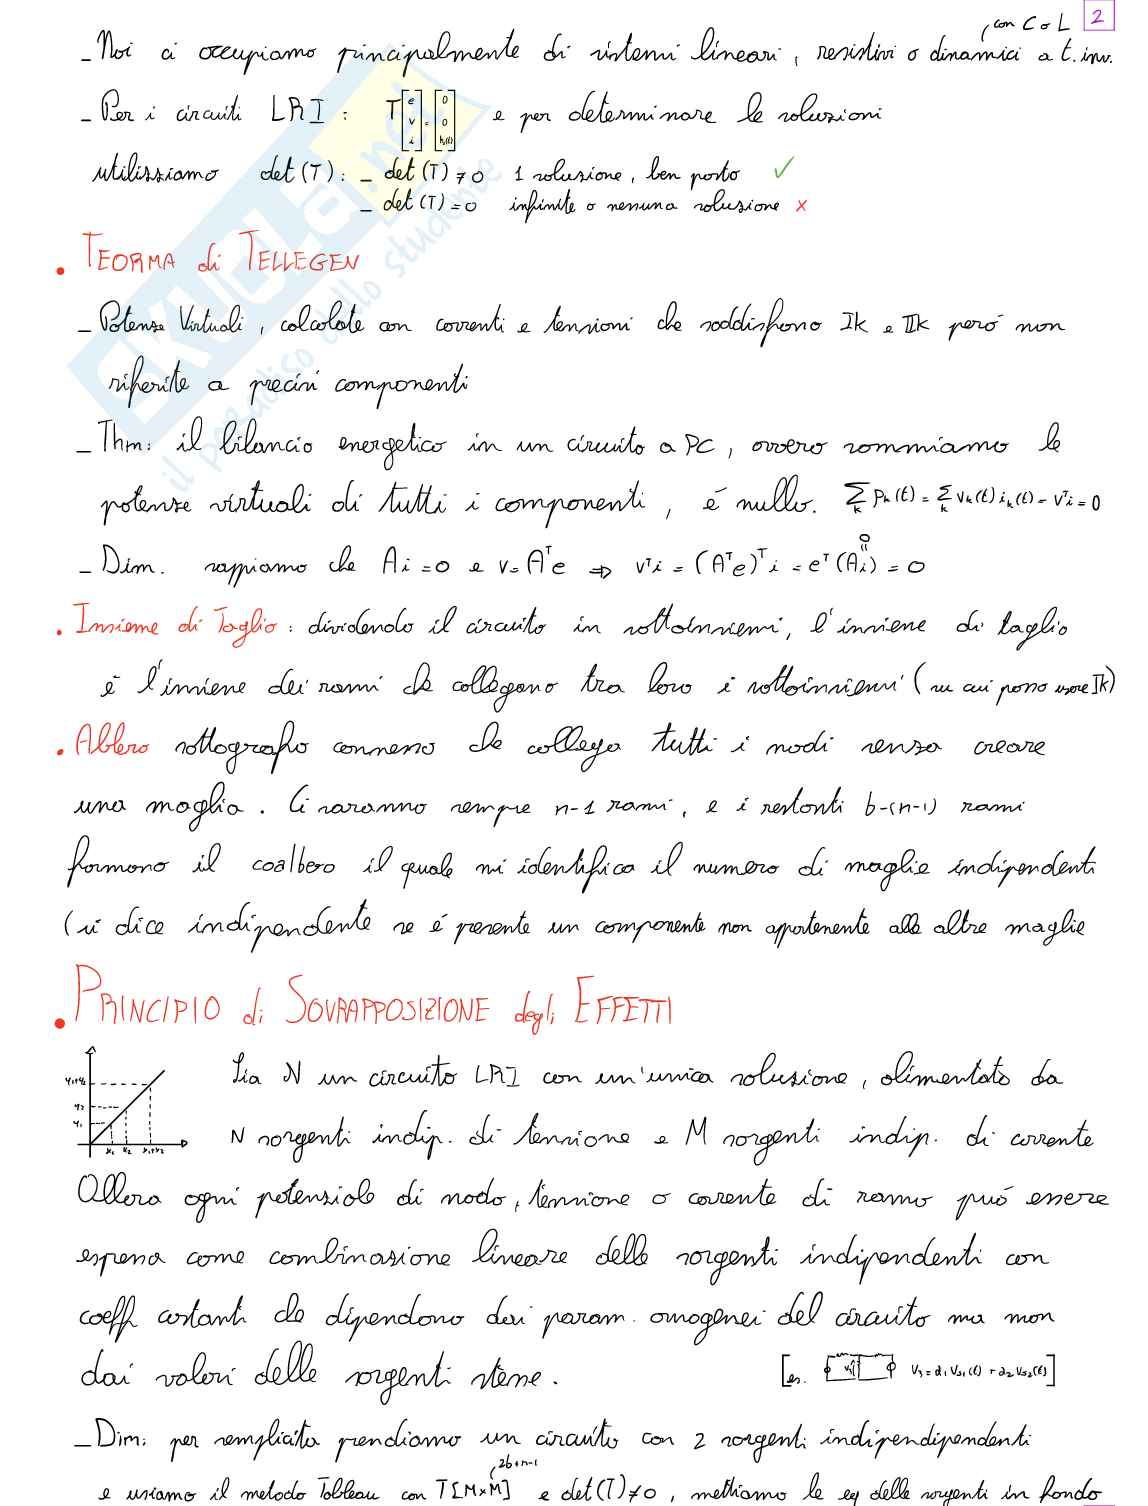 , con C o L 2
- Noi ci occupiamo principalmente di sistemi lineari, resistivi o dinamici a t. inv.
- Per i circuiti LRI : T [e v i] = [0 0 h(t)] e per determinare le soluzioni
utilizziamo det(T): - det(T) ≠ 0 1 soluzione, ben posto ✓
- det(T) = 0 infinite o nessuna soluzione x
• TEORMA di TELLEGEN
- Potenze Virtuali, calcolate con correnti e tensioni che soddisfano Ik e IIk peró non
riferite a precisi componenti
- Thm: il bilancio energetico in un circuito a PC, ovvero sommiamo le
potenze virtuali di tutti i componenti, é nullo. Σk pk(t) = Σk vk(t) ik(t) = vᵀi = 0
- Dim. sappiamo che Ai = 0 e v = Aᵀe ⇒ vᵀi = (Aᵀe)ᵀi = eᵀ(Ai) = 0
0
• Insieme di Taglio : dividendo il circuito in sottoinsiemi, l'insieme di taglio
é l'insieme dei rami che collegano tra loro i sottoinsiemi (su cui posso usare Ik)
• Albero sottografo connesso che collega tutti i nodi senza creare
una maglia. Ci saranno sempre n-1 rami, e i restanti b-(n-1) rami
formano il coalbero il quale mi identifica il numero di maglie indipendenti
(si dice indipendente se é presente un componente non appartenente alle altre maglie
• PRINCIPIO di SOVRAPPOSIZIONE degli EFFETTI
y1+y2 y2 y1 x1 x2 x1+x2
Sia N un circuito LRI con un'unica soluzione, alimentato da
N sorgenti indip. di tensione e M sorgenti indip. di corrente
Allora ogni potenziale di nodo, tensione o corrente di ramo puó essere
espressa come combinazione lineare delle sorgenti indipendenti con
coeff costanti che dipendono dai param. omogenei del circuito ma non
dai valori delle sorgenti stesse. [es. v3 v3 = a1 vs1(t) + a2 vs2(t)]
- Dim: per semplicita prendiamo un circuito con 2 sorgenti indipendipendenti
2b+n-1
e usiamo il metodo Tableau con T[M×M] e det(T) ≠ 0, mettiamo le eq delle sorgenti in fondo
SKUOLA.net
il paradiso dello studente